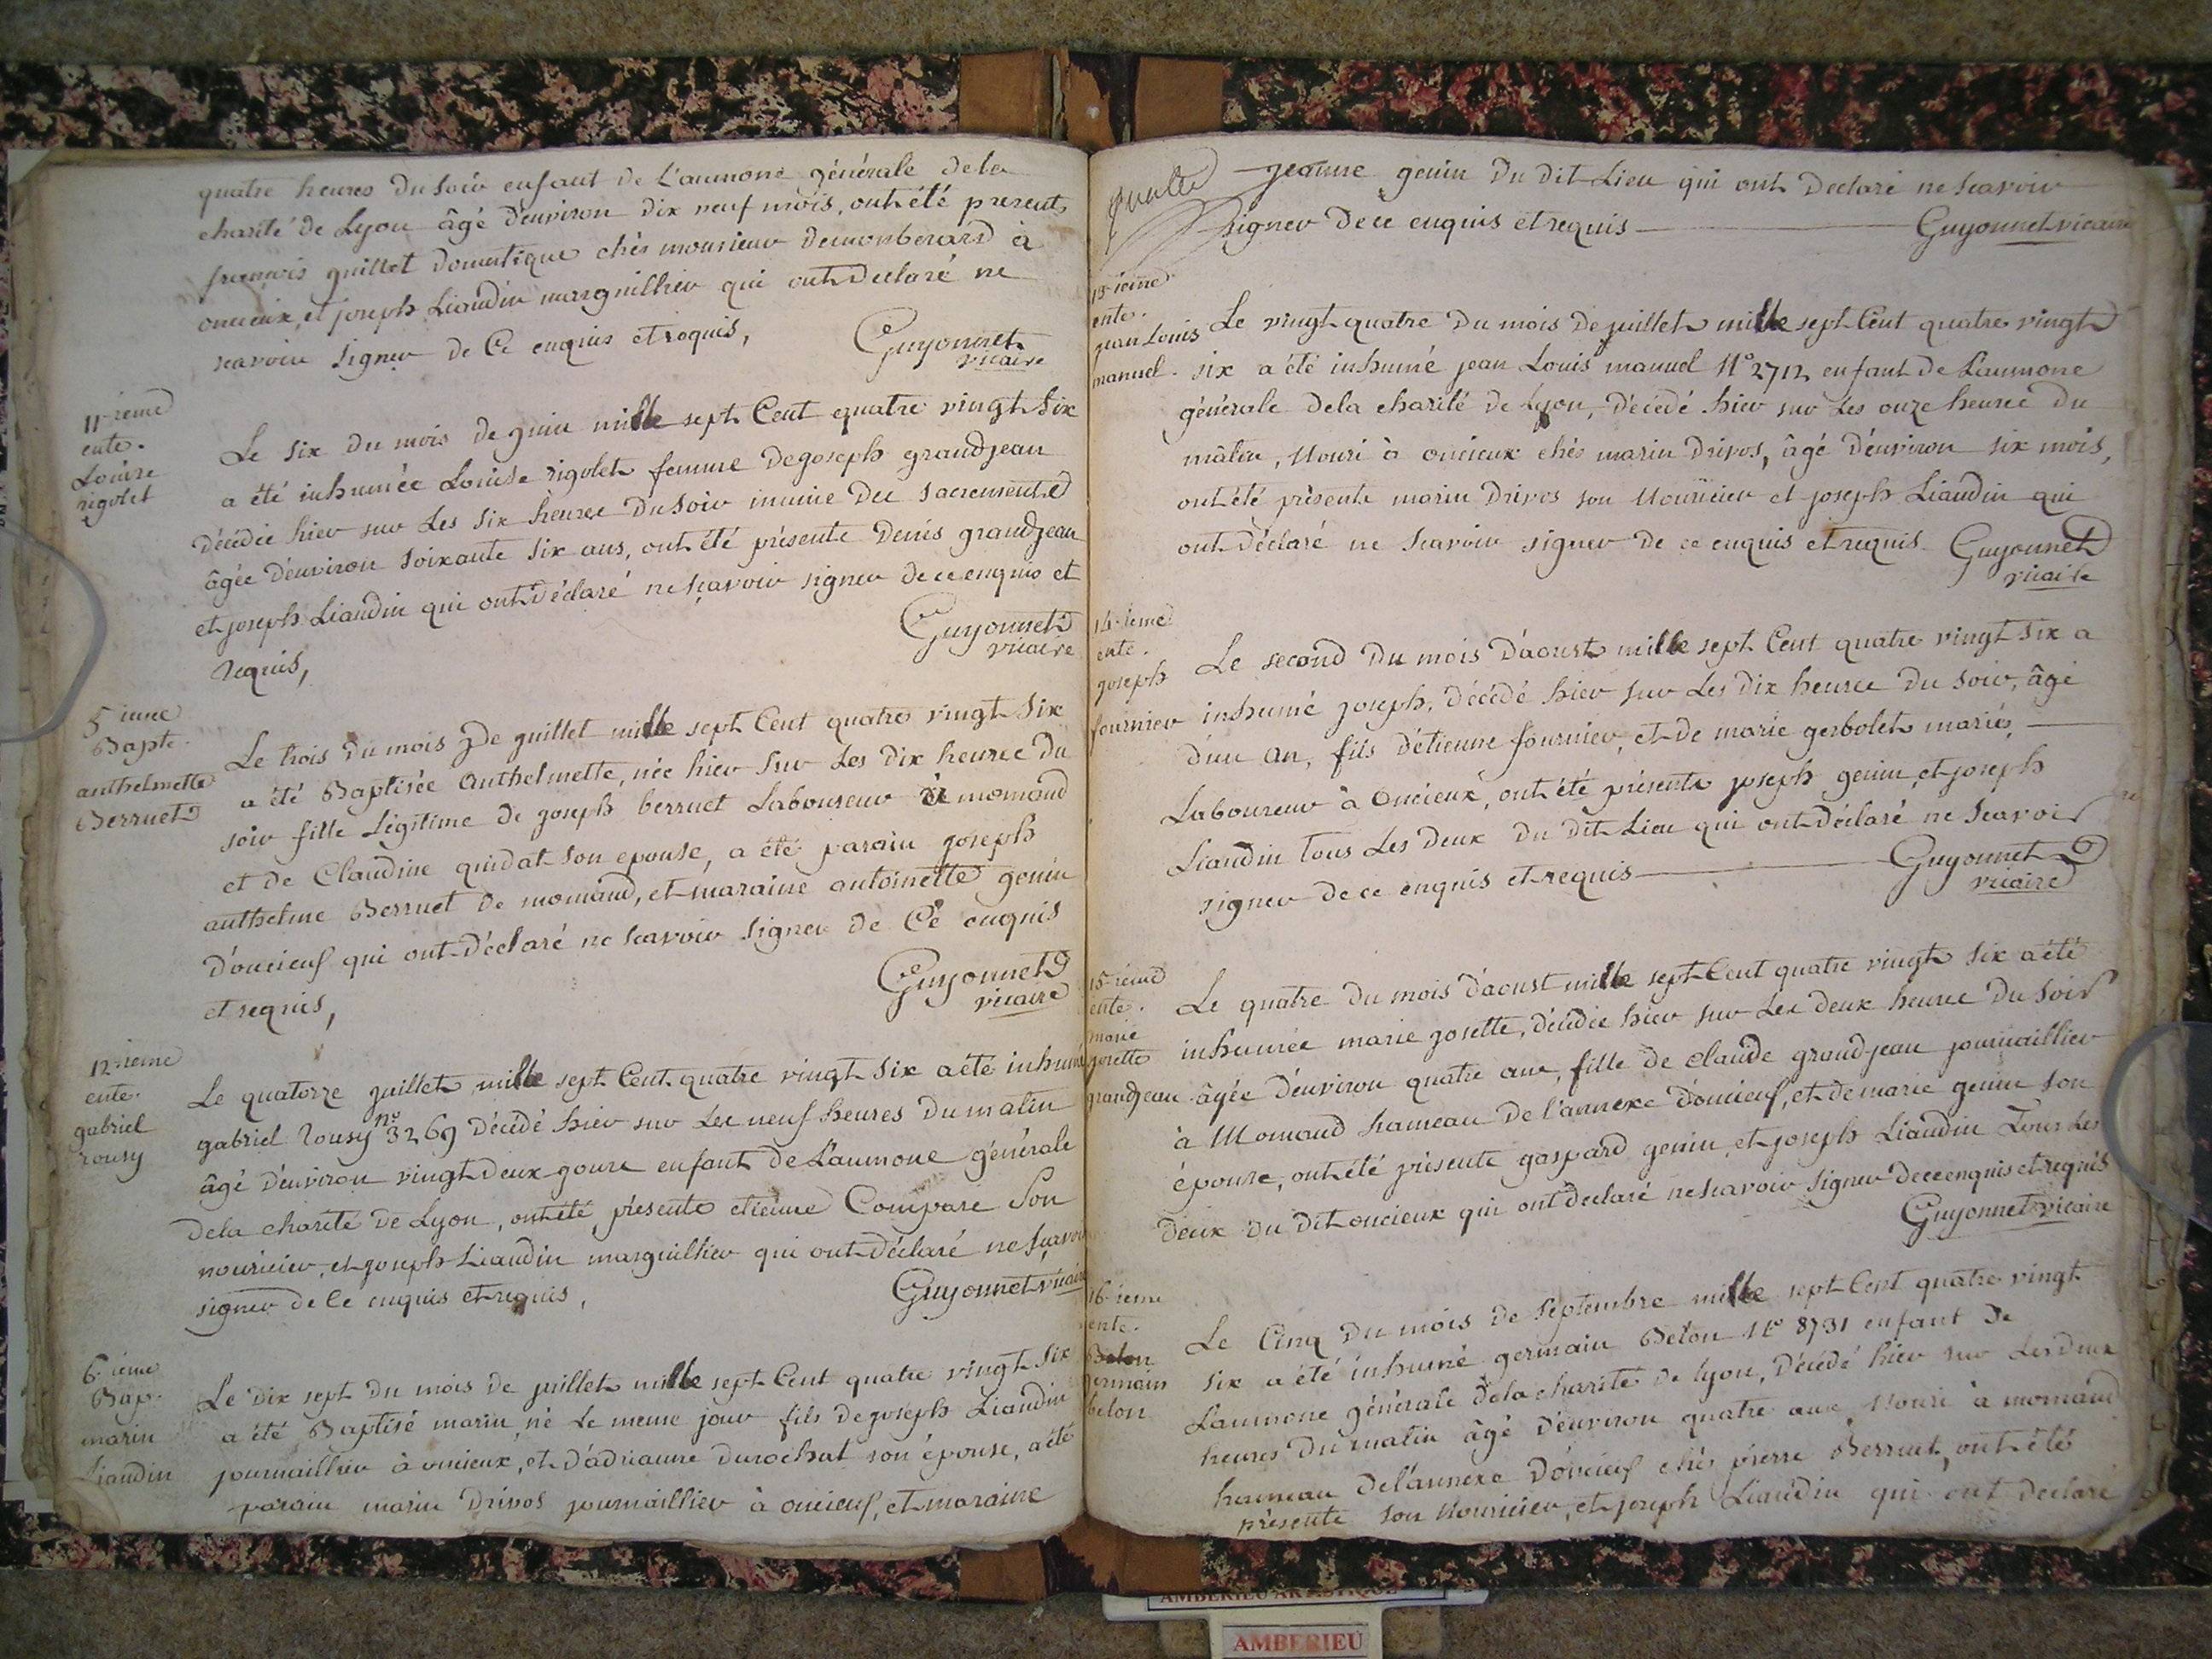 quatre heures du soir enfant de L'aumone générale dela
charité de Lyon âgé d'environ dix neuf mois, ont été presents
francois guillet domestique chés monsieur demonberard à
oncieux, et joseph Liaudin marguillier qui ont declaré ne
scavoir signer de Ce enquis et requis,
Guyonnet
vicaire
11-ieme
ente.
Louise
rigolet
Le six du mois de juin mille sept Cent quatre vingt six
a été inhumée Louise rigolet femme de joseph grandjean
décédée hier sur les six heures du soir munie des sacrements
âgée d'environ soixante six ans, ont été présents Denis grandjean
et joseph Liaudin qui ont déclaré ne sçavoir signer de ce enquis et
requis,
Guyonnet
vicaire
5 ieme
Bapt.
anthelmette
Berruet
Le trois du mois de juillet mille sept Cent quatre vingt six
a été Baptisée Anthelmette, née hier sur les dix heures du
soir fille Légitime de joseph berruet Laboureur à momand
et de Claudine quidat son epouse, a été parain joseph
anthelme Berruet de momand, et maraine antoinette genin
d'oncieux qui ont déclaré ne scavoir signer de Ce enquis
et requis,
Guyonnet
vicaire
12-ieme
ente.
gabriel
rousy
Le quatorze juillet mille sept Cent quatre vingt six a été inhumé
gabriel rousy n° 3269 décédé hier sur les neuf heures du matin
âgé d'environ vingt deux jours enfant de L'aumone générale
dela charité de Lyon, ont été présents etienne Compare son
nouricier, et joseph Liaudin marguillier qui ont déclaré ne sçavoir
signer de Ce enquis et requis,
Guyonnet vicaire
6-ieme
Bap.
marin
Liaudin
Le dix sept du mois de juillet mille sept Cent quatre vingt six
a été Baptisé marin, né Le meme jour fils de joseph Liaudin
journaillier à oncieux, et d'adrianne durochat son épouse, a été
parain marin Drivos journaillier à oncieux, et maraine
jeanne genin du dit Lieu qui ont declaré ne scavoir
signer de ce enquis et requis
Guyonnet vicaire
13-ieme
ente.
jean Louis
manuel.
Le vingt quatre du mois de juillet mille sept Cent quatre vingt
six a été inhumé jean Louis manuel N° 2712 enfant de L'aumone
générale dela charité de Lyon, décédé hier sur les onze heures du
mâtin, Nouri à oncieux chés marin Drivos, âgé d'environ six mois,
ont été présents marin Drivos son Nouricier et joseph Liaudin qui
ont déclaré ne scavoir signer de ce enquis et requis
Guyonnet
vicaire
14-ieme
ente.
joseph
fournier
Le second du mois d'aoust mille sept Cent quatre vingt six a
inhumé joseph, décédé hier sur les dix heures du soir, âgé
d'un an, fils d'étienne fournier, et de marie gerbolet mariés,
Laboureur à Oncieux, ont été présents joseph genin, et joseph
Liaudin tous Les deux du dit Lieu qui ont déclaré ne scavoir
signer de ce enquis et requis
Guyonnet
vicaire
15-ieme
ente.
marie
josette
grandjean
Le quatre du mois d'aoust mille sept Cent quatre vingt six a été
inhumée marie josette, décédée hier sur Les deux heures du soir
âgée d'environ quatre ans, fille de claude grandjean journaillier
à Momand hameau de l'annexe d'oncieux, et de marie genin son
épouse, ont été présents gaspard genin, et joseph Liaudin Tous Les
deux du dit oncieux qui ont declaré ne scavoir signer de ce enquis et requis
Guyonnet vicaire
16-ieme
ente.
Belon
germain
belon
Le Cinq du mois de septembre mille sept Cent quatre vingt
six a été inhumé germain Belon N° 8731 enfant de
L'aumone générale dela charité de lyon, décédé hier sur Les deux
heures du matin âgé d'environ quatre ans, Nouri à momand
hameau de l'annexe d'oncieux chés pierre Berruet, ont été
présents son Nouricier, et joseph Liaudin qui ont declaré
AMBERIEU